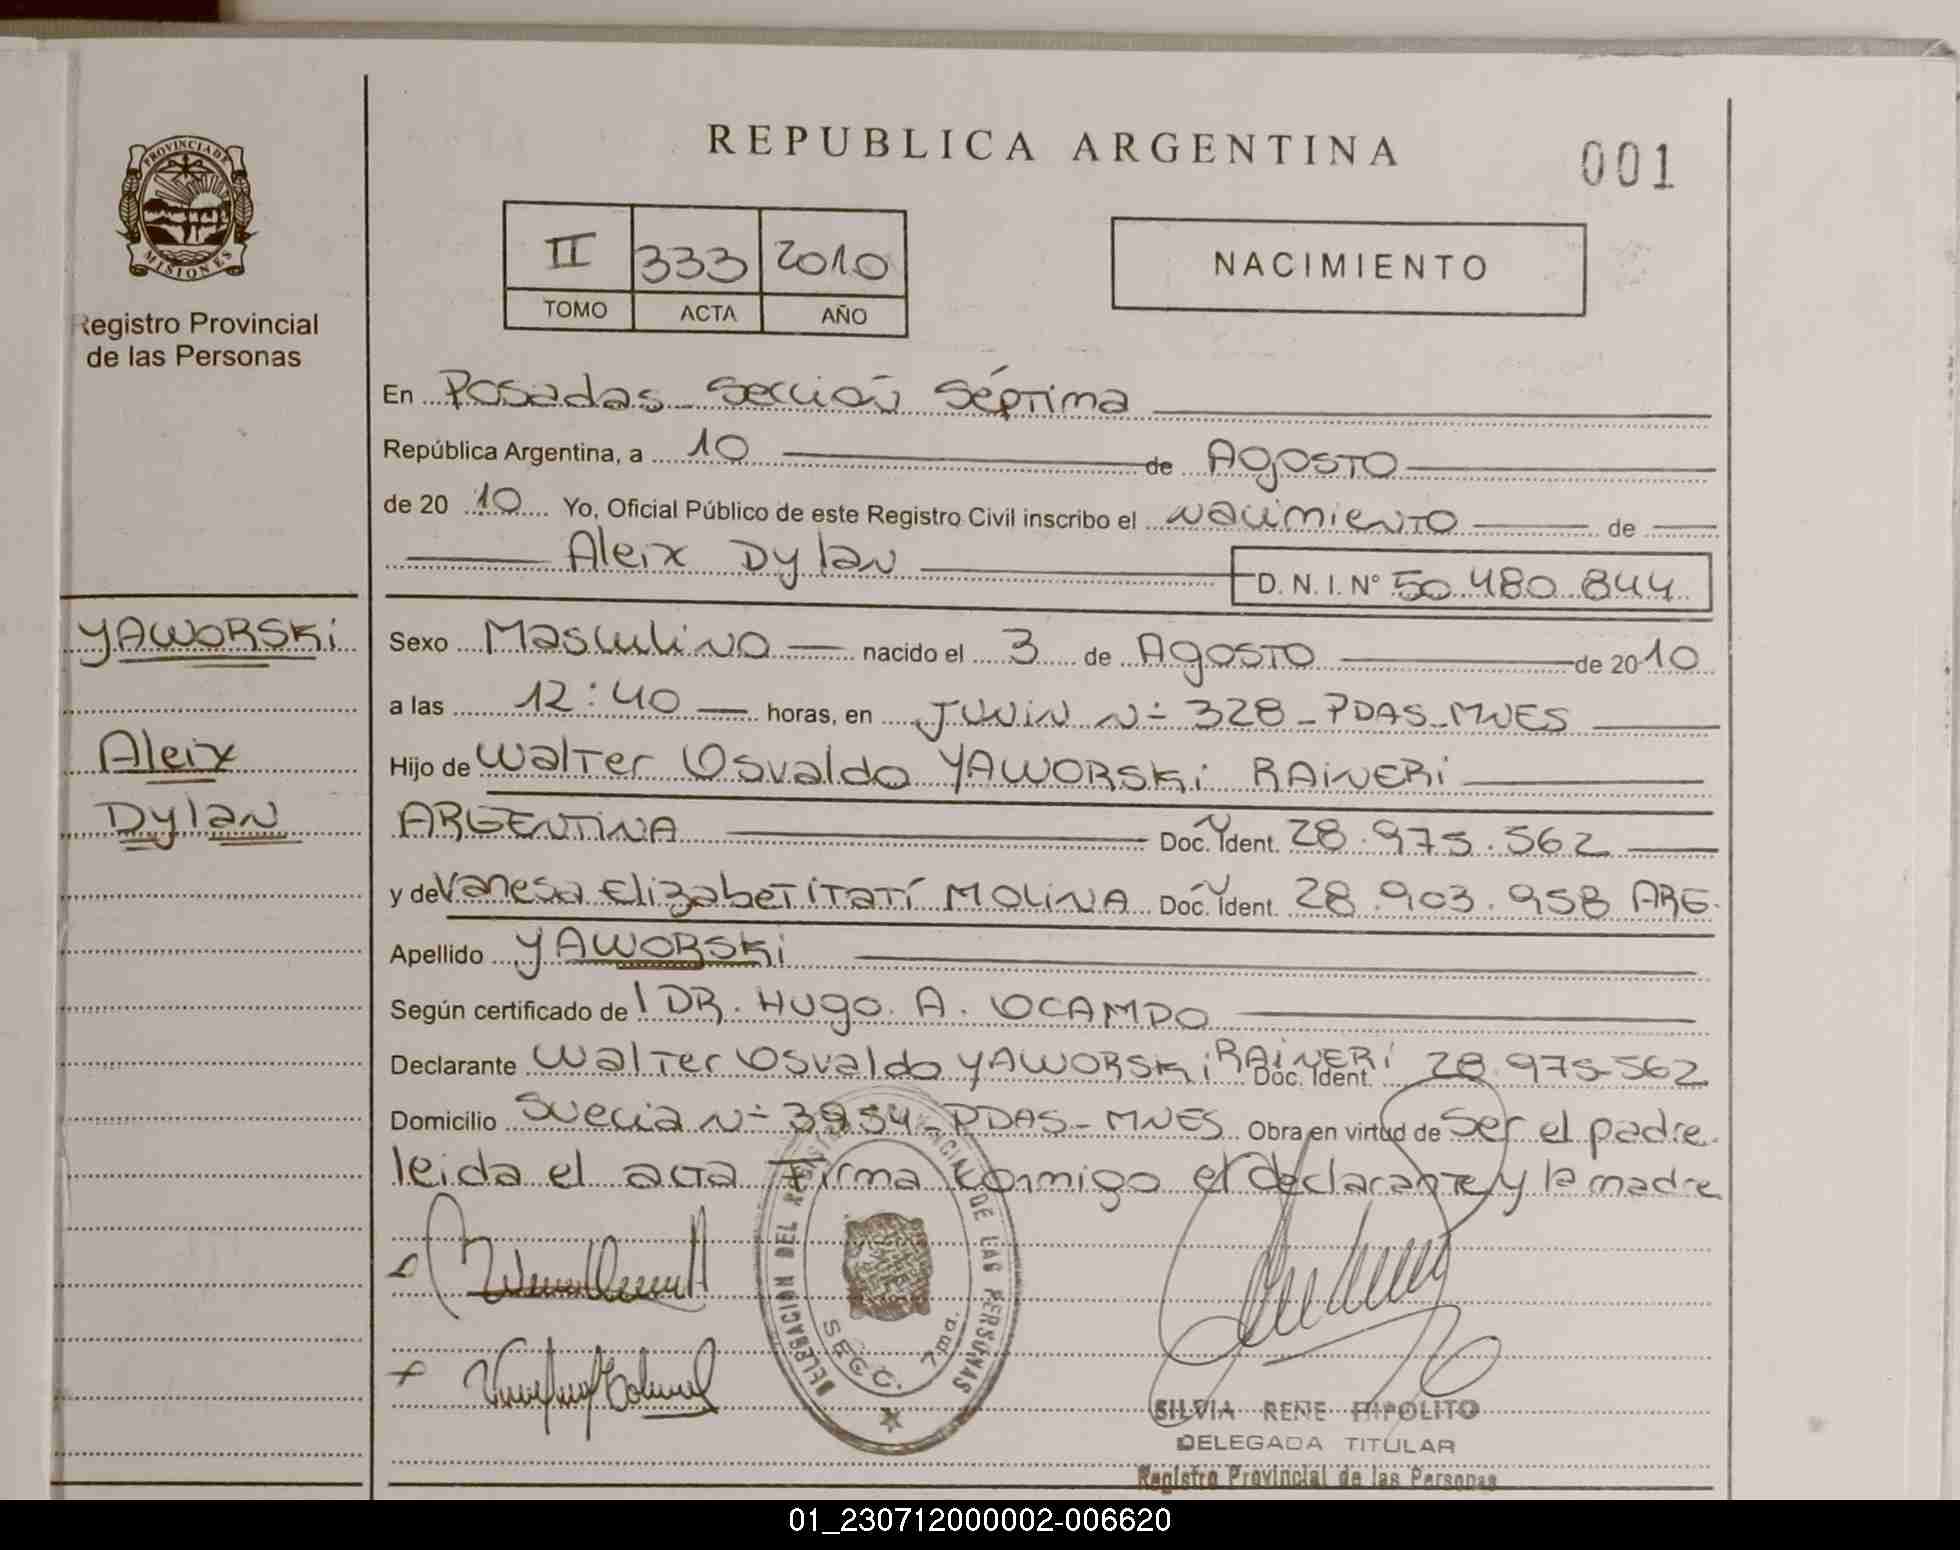 PROVINCIA DE
MISIONES
Registro Provincial
de las Personas
REPUBLICA ARGENTINA
001
II 333 2010
TOMO ACTA AÑO
NACIMIENTO
En Posadas - Sección Séptima
República Argentina, a 10 de Agosto
de 2010 Yo, Oficial Público de este Registro Civil inscribo el Nacimiento de
Aleix Dylan
D. N. I. N° 50.480.844
YAWORSKi
Aleix
Dylan
Sexo Masculino nacido el 3 de Agosto de 2010
a las 12:40 horas, en JUNiN N° 328 - PDAS - MNES
Hijo de Walter Osvaldo YAWORSKi RAiNERi
ARGENTiNA Doc. Ident. 28.975.562
y de Vanesa Elizabet iTatí MOLiNA Doc. Ident. 28.903.958 ARG.
Apellido YAWORSKi
Según certificado de DR. HUgo. A. OCAMPO
Declarante Walter Osvaldo YAWORSKi RAiNERi Doc. Ident. 28.975-562
Domicilio Suecia N° 3954 - PDAS - MNES Obra en virtud de Ser el padre.
leida el acta Firma conmigo el declarante y la madre
DELEGACION DEL REGISTRO PROVINCIAL DE LAS PERSONAS
SECC. 7ma.
SILVIA RENE HIPOLITO
DELEGADA TITULAR
Registro Provincial de las Personas
01_230712000002-006620